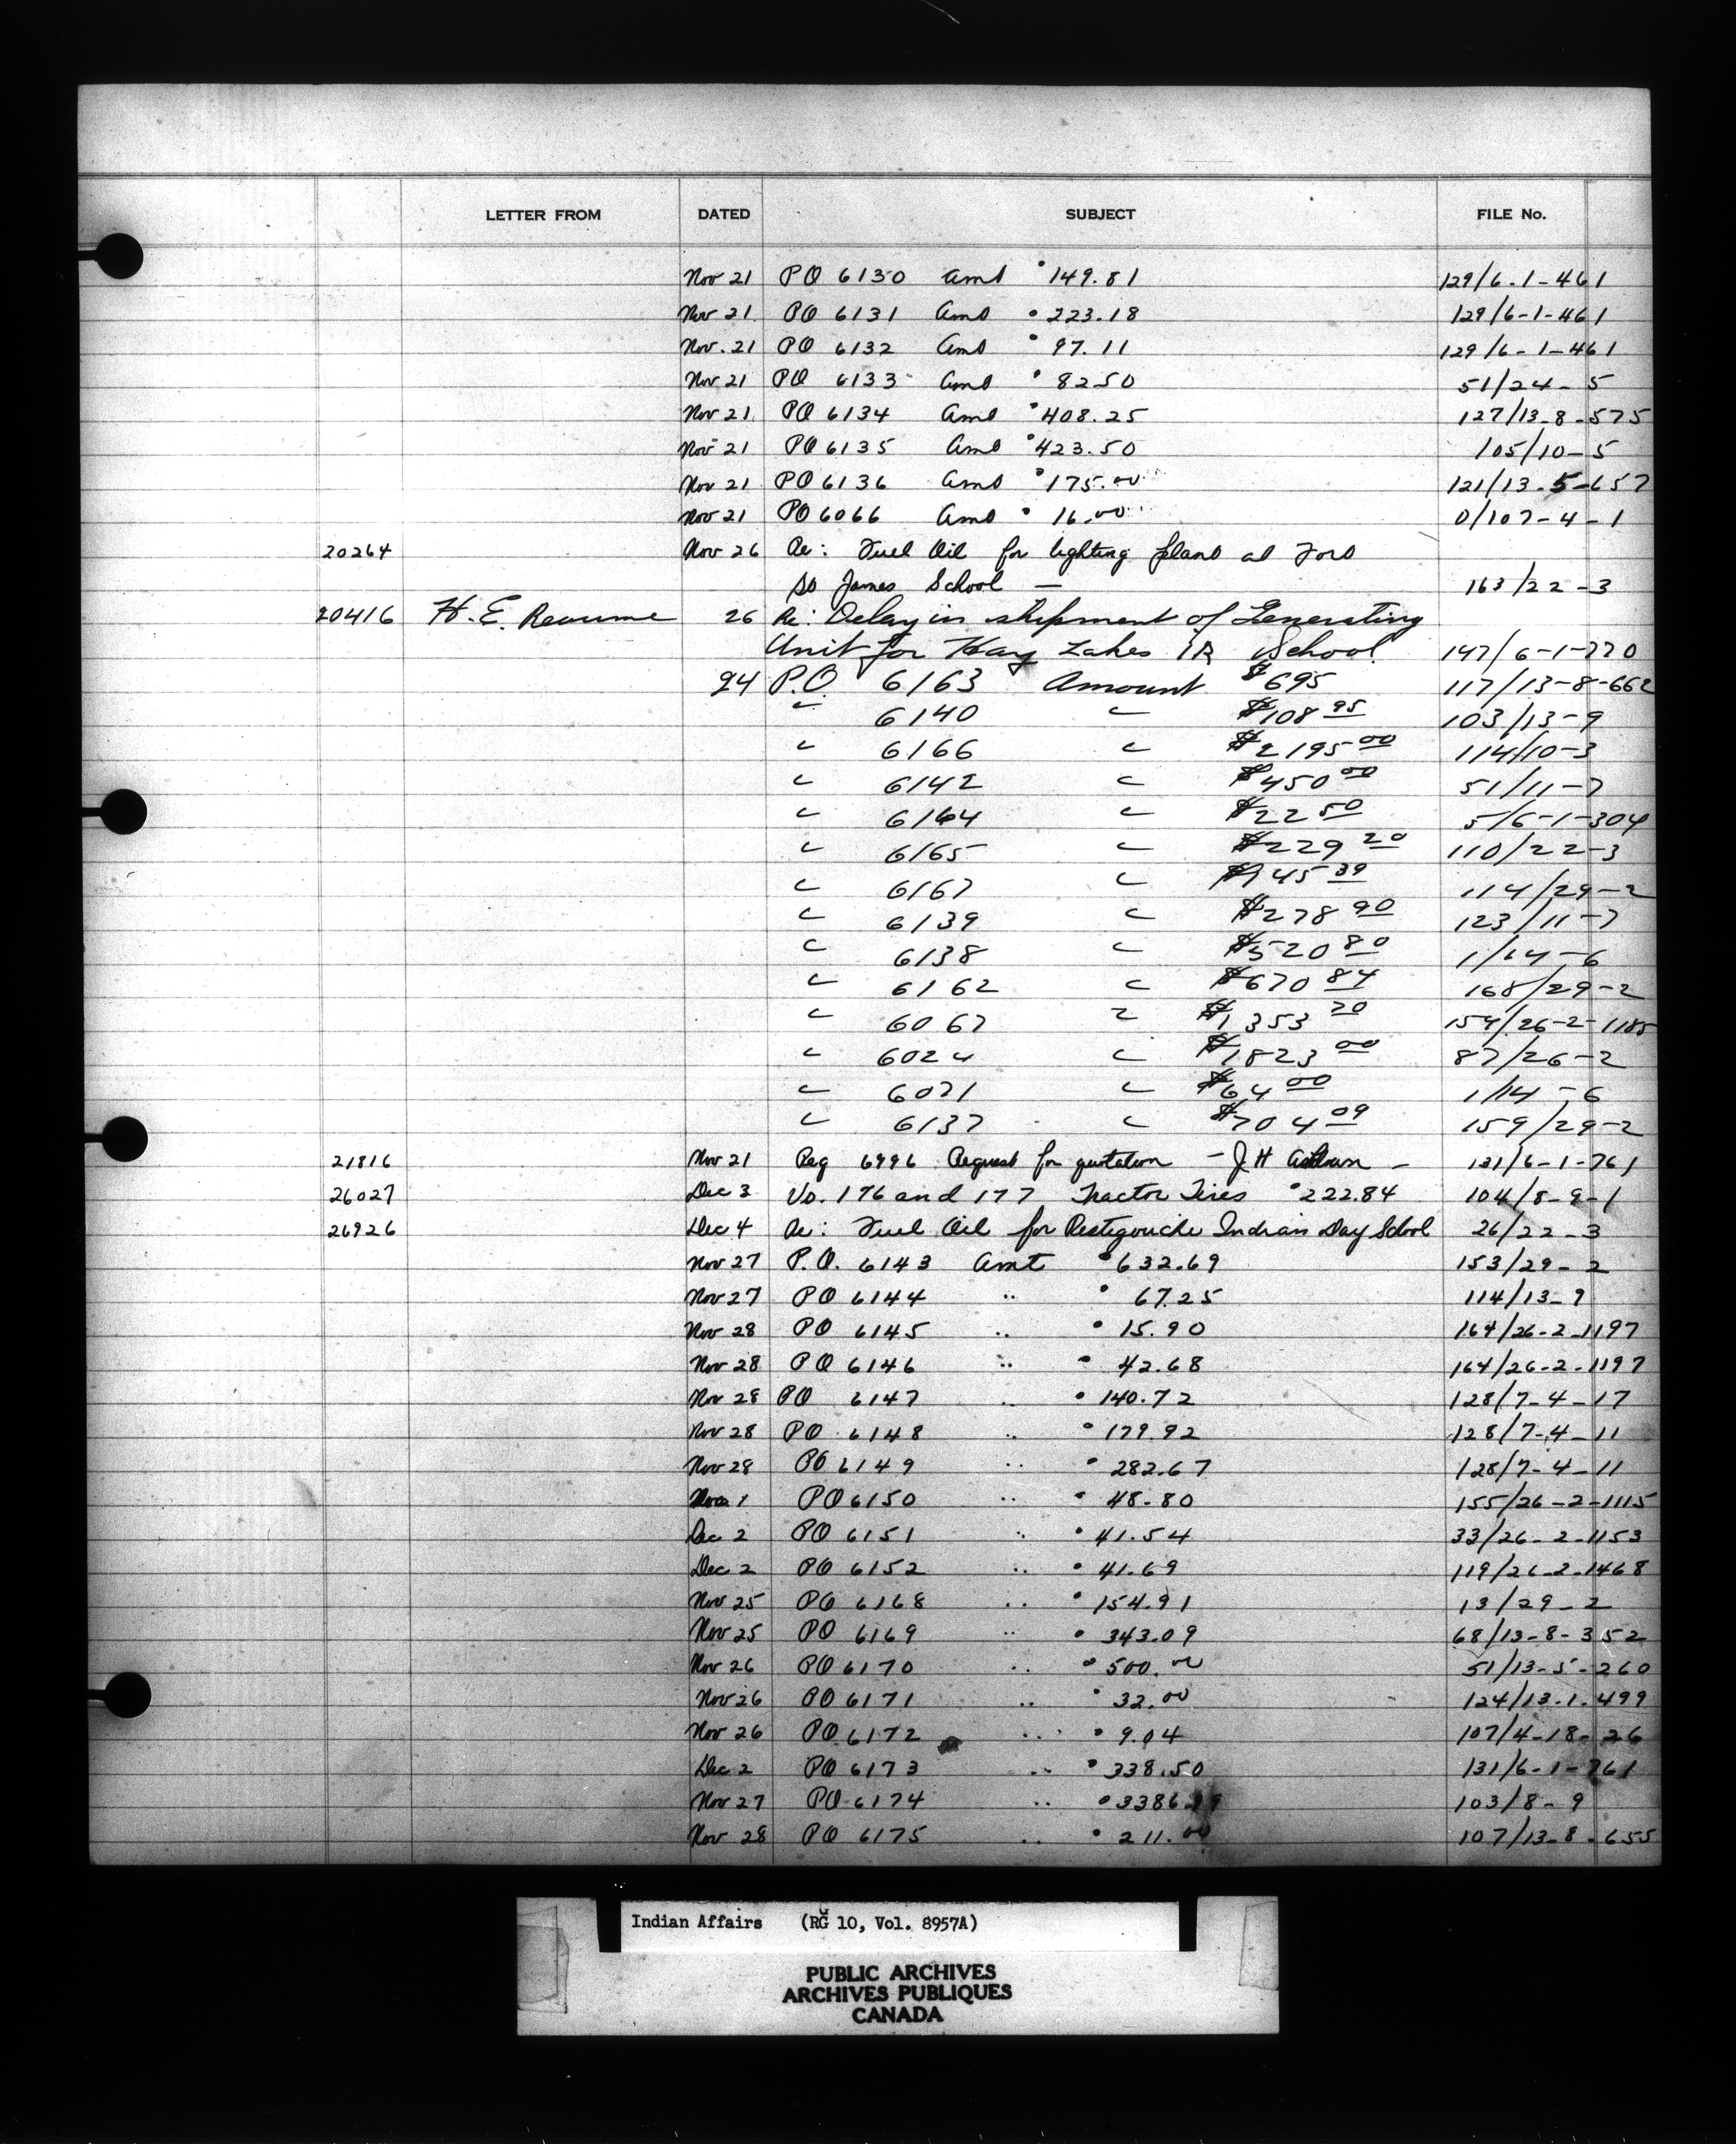 LETTER FROM DATED SUBJECT FILE No.
Nov 21 PO 6130 Amt 149.81 129/6-1-461
Nov 21 PO 6131 Amt 223.18 129/6-1-461
Nov. 21 PO 6132 Amt 97.11 129/6-1-461
Nov 21 PO 6133 Amt 82.50 51/24-5
Nov 21 PO 6134 Amt 408.25 127/13-8-575
Nov 21 PO 6135 Amt 423.50 105/10-5
Nov 21 PO 6136 Amt 175.00 121/13-5-657
Nov 21 PO 6066 Amt 16.00 0/107-4-1
20264 Nov 26 Re: Fuel Oil for lighting plant at Fort
St James School — 163/22-3
20416 H. E. 26 Re: Delay in shipment of Generating
Unit for Hay Lakes IR School 147/6-1-770
24 P.O. 6163 Amount $695 117/13-8-662
" 6140 " $108 95 103/13-9
" 6166 " $2195 00 114/10-3
" 6142 " $450 00 51/11-7
" 6164 " $22 50 5/6-1-304
" 6165 " $229 20 110/22-3
" 6167 " 45 39 114/29-2
" 6139 " $278 90 123/11-7
" 6138 " $520 80 1/14-6
" 6162 " $670 84 168/29-2
" 6067 " $1,353 20 154/26-2-1185
" 6024 " $1823 00 87/26-2
" 6071 " $64 00 1/14-6
" 6137 " $704 09 159/29-2
21816 Nov 21 Req 6996 Request for quotation - J H Ashdown - 131/6-1-761
26027 Dec 3 Vo. 176 and 177 Tractor Tires 222.84 104/8-9-1
26926 Dec 4 Re: Fuel Oil for Restigouche Indian Day School 26/22-3
Nov 27 P.O. 6143 Amt 632.69 153/29-2
Nov 27 PO 6144 " 67.25 114/13-9
Nov 28 PO 6145 " 15.90 164/26-2-1197
Nov 28 PO 6146 " 42.68 164/26-2-1197
Nov 28 PO 6147 " 140.72 128/7-4-17
Nov 28 PO 6148 " 179.92 128/7-4-11
Nov 28 PO 6149 " 282.67 128/7-4-11
1 PO 6150 " 48.80 155/26-2-1115
Dec 2 PO 6151 " 41.54 33/26-2-1153
Dec 2 PO 6152 " 41.69 119/26-2-1468
Nov 25 PO 6168 " 154.91 13/29-2
Nov 25 PO 6169 " 343.09 68/13-8-352
Nov 26 PO 6170 " 500.00 51/13-5-260
Nov 26 PO 6171 " 32.00 124/13-1-499
Nov 26 PO 6172 " 9.04 107/4-18-26
Dec 2 PO 6173 " 338.50 131/6-1-761
Nov 27 PO 6174 " 103/8-9
Nov 28 PO 6175 " 211.00 107/13-8-655
Indian Affairs (RG 10, Vol. 8957A)
PUBLIC ARCHIVES
ARCHIVES PUBLIQUES
CANADA